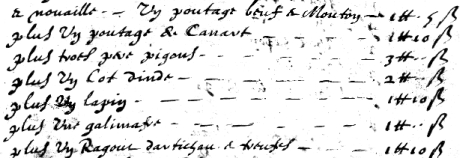 & nouaille - - Vn poutage beuf & Mouton — 1 tt · 5 ß
plus Vn poutage de Canart — — — — 1 tt 10 ß
plus troes pere pigons - - — — — 3 tt · · ß
plus Vn Cot dinde - — — — — 2 tt · · ß
plus Vn lapin - — — — — — 1 tt 10 ß
plus Vne galimafre - — — — — 1 tt · · ß
plus Vn Ragout dartichau & treufes - — — 1 tt 10 ß